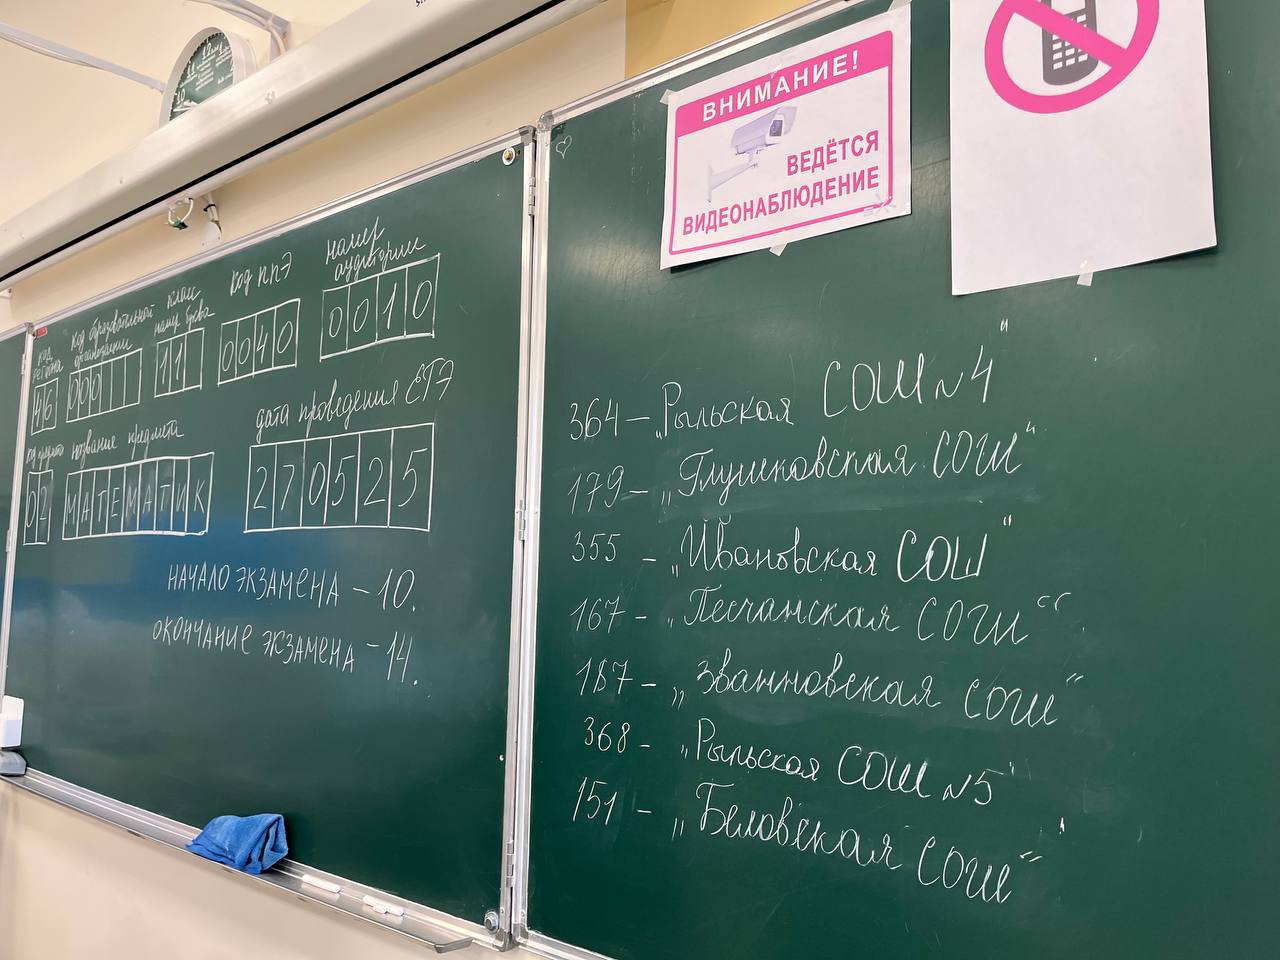 код региона
код образовательной организации
класс
номер буква
код ППЭ
номер аудитории
46
000
11
0040
0010
код предмета
название предмета
дата проведения ЕГЭ
02
МАТЕМАТИК
270525
НАЧАЛО ЭКЗАМЕНА – 10.
ОКОНЧАНИЕ ЭКЗАМЕНА – 14.
ВНИМАНИЕ!
ВЕДЁТСЯ
ВИДЕОНАБЛЮДЕНИЕ
364 – „Рыльская СОШ №4"
179 – „Глушковская СОШ"
355 – „Ивановская СОШ"
167 – „Песчанская СОШ"
187 – „Званновская СОШ"
368 – „Рыльская СОШ №5"
151 – „Беловская СОШ"